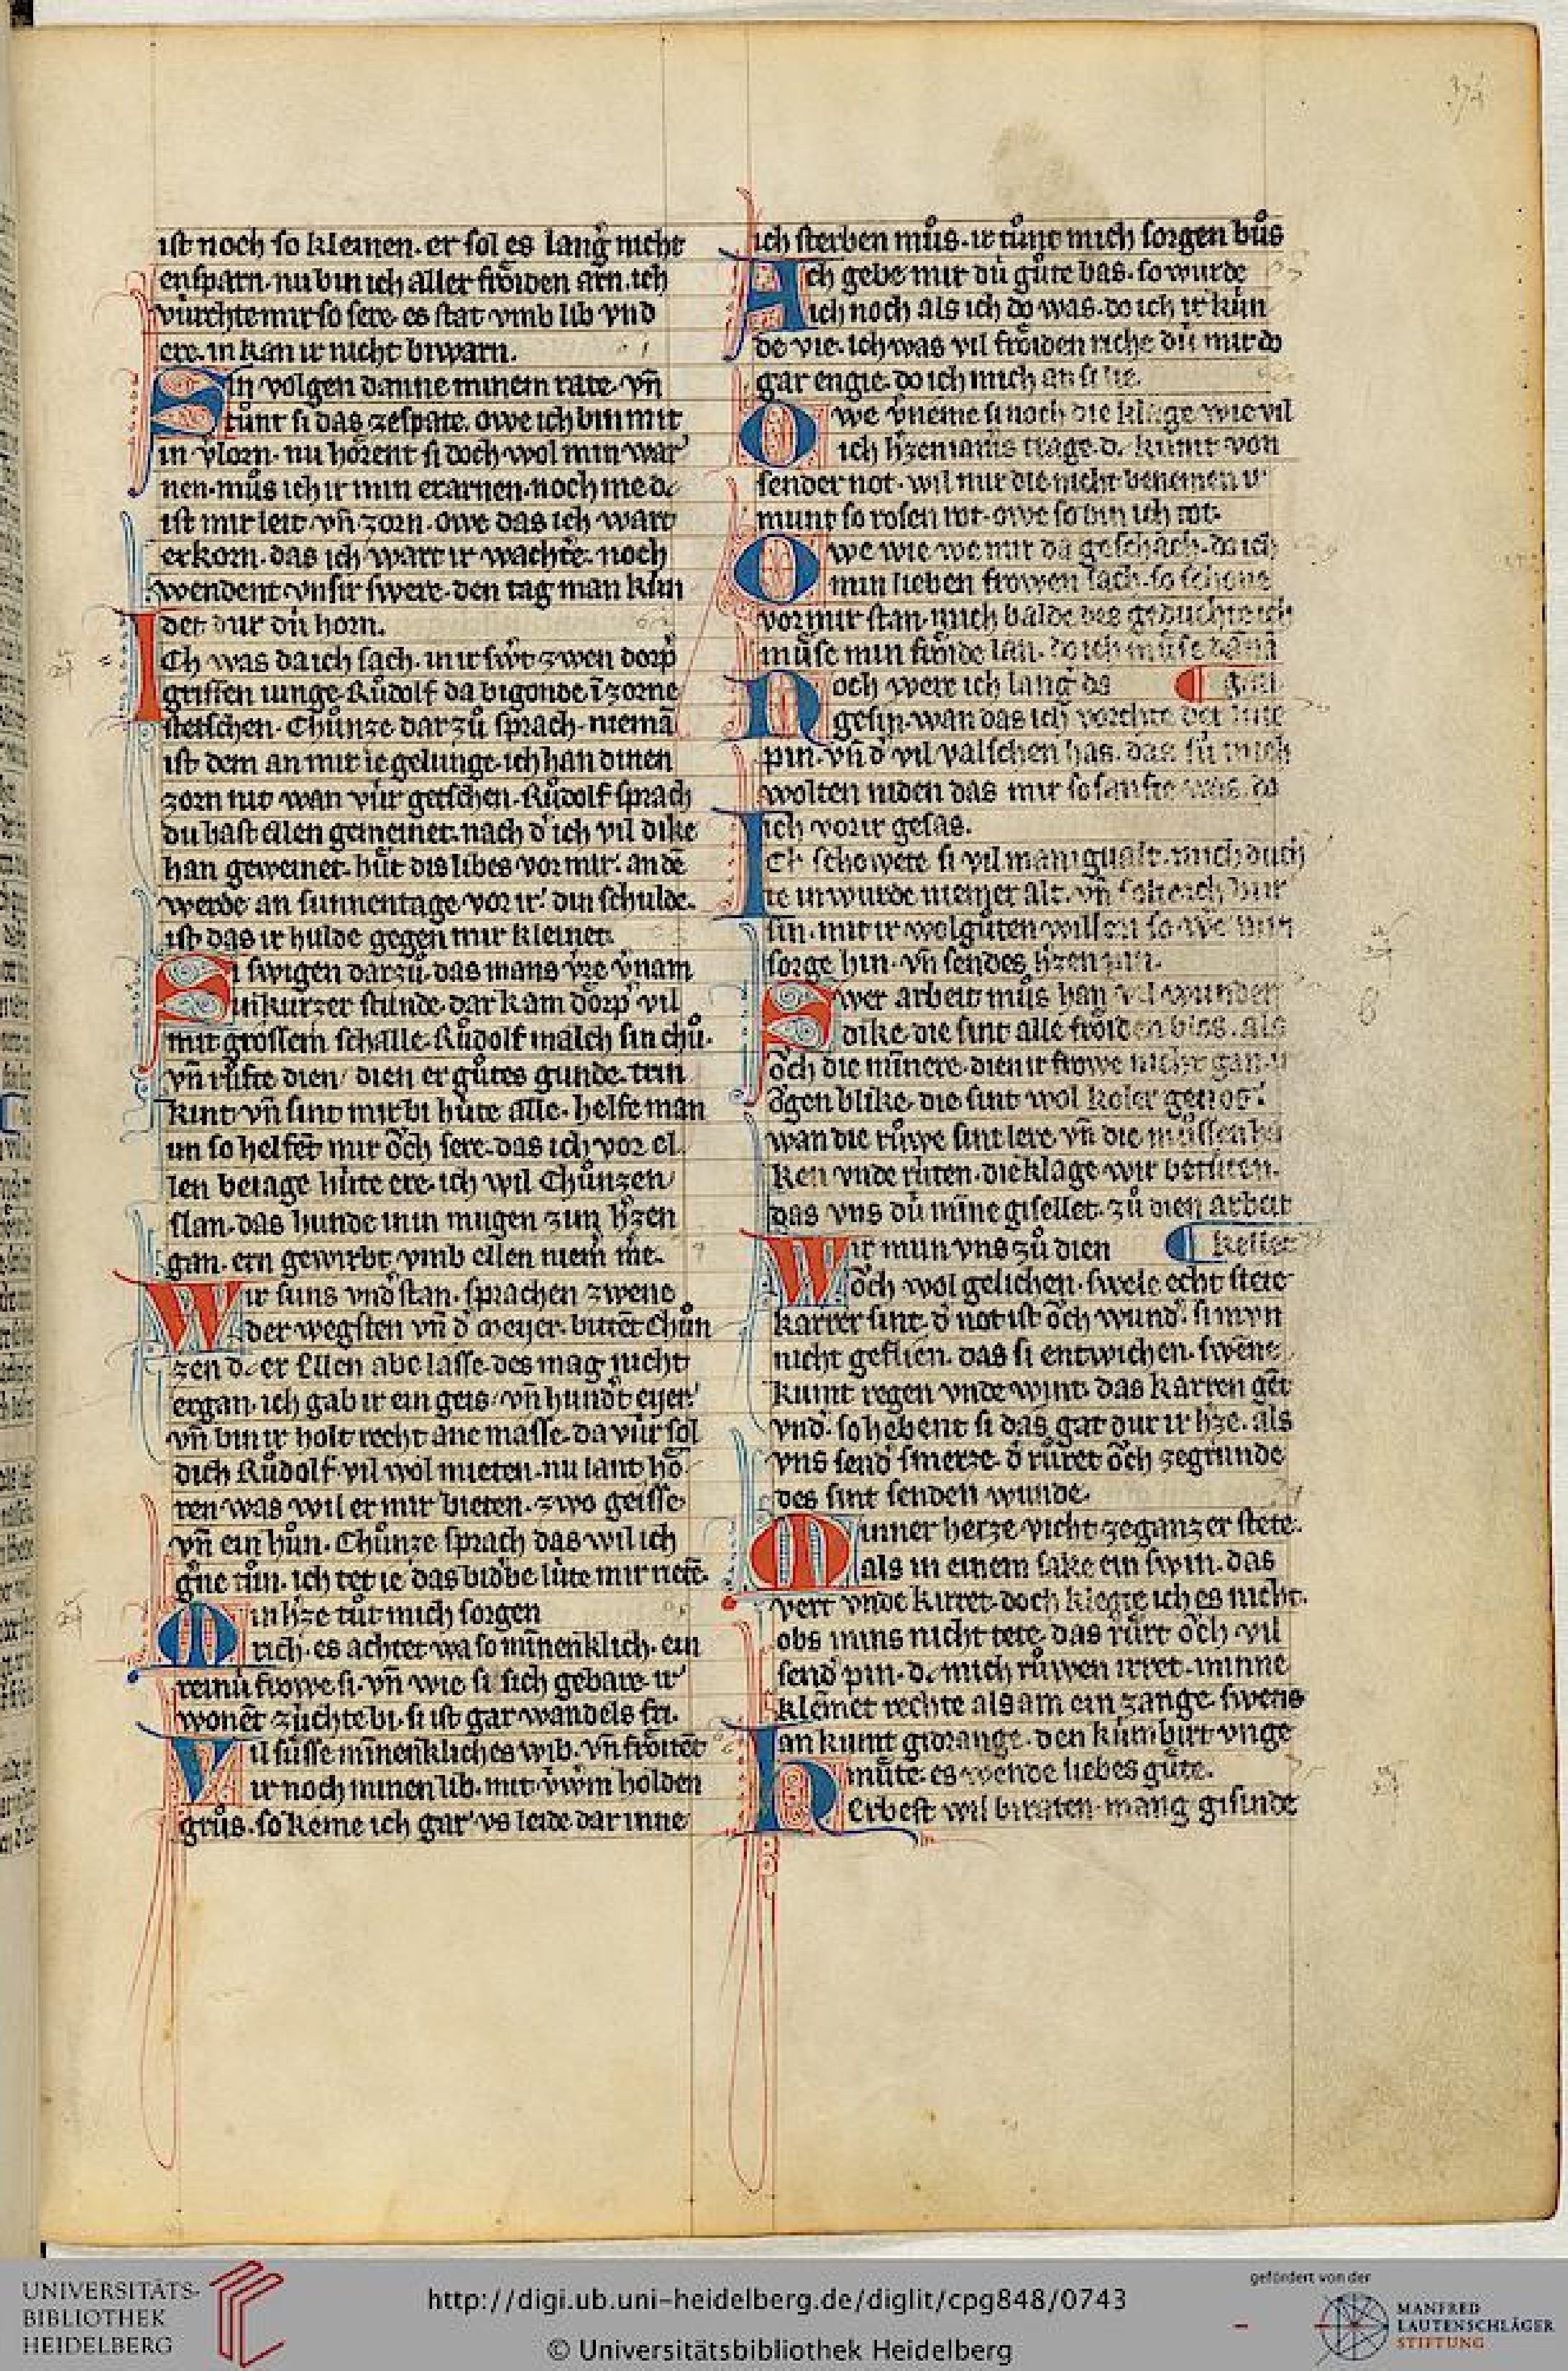 374
ist noch so kleinen. er sol es lang' nicht
ensparn. nu bin ich aller froͤiden arn. ich
vürchte mir so sere. es stat vmb lib vnd
ere. in kan ir nicht bewarn.
Sin volgen danne minem rate. vn̄
tuͦnt si das zespate. owe ich bin mit
in v̓lorn. nu hoͤrent si doch wol min war
nen. muͦs ich ir min erarnen. noch me
ist mir leit vn̄ zorn. owe das ich wart
erkorn. das ich wart ir wachte. noch
wendent vnsir swere. den tag man kün
det dur du̍ horn.
ICh was da ich sach. in ir swert zwen dorp
griffen iunge. Ruͦdolf da bigonde ī zorne
Chuͦnze dar zuͦ sprach. niemā
ist dem an mir ie gelunge. ich han dinen
zorn nit wan vür getschen. Ruͦdolf sprach
du hast ellen gemeinet. nach d' ich vil dike
han geweinet. huͤt dis libes vor mir. an dē
werde an sunnentage vor ir. din schulde.
ist das ir hulde gegen mir kleinet.
Si swigen darzuͦ. das mans
in kurzer stunde. dar kam dorp' vil
mit grossem schalle. Ruͦdolf sin
vn̄ ruͦfte dien dien er guͦtes gunde. trin
kint vn̄ sint mit bi huͤte alle. helfe man
im so helfet mir oͮch sere. das ich vor el
len beiage huͤte ere. ich wil Chuͦnzen
slan. das hunde in in mugen zun h'zen
gan. ern gewirbt vmb ellen niem' me.
Wir suns vnd'stan. sprachen zwene
der wegsten vn̄ d' meyer. butēt Chuͦn
zen dc er Ellen abe lasse. des mag nicht
ergan. ich gab ir ein geis. vn̄ hund't eyer.
vn̄ bin ir holt recht ane masse. da vür sol
dich Ruͦdolf vil wol mieten. nu lant hoͤ
ren was wil er mir bieten. zwo geisse
vn̄ ein huͦn. Chuͦnze sprach das wil ich
g'ne tuͦn. ich tet ie das bid'be lüte mir rietē.
Min h'ze tuͦt mich sorgen
rich. es achtet wa so minnenklich. ein
reinü frowe si. vn̄ wie si sich gebare. ir
wonēt zu̍chte bi. si ist gar wandels fri.
Vil suͤsse minnenkliches wib. vn̄ froͤitēt
ir noch minen lib. mit v̓wm holden
gruͦs. so keme ich gar vs leide dar inne
ich sterben muͦs. ir tuͦnt mich sorgen buͦs
Ach gebe mir du̍ guͤte bas. so wurde
ich noch als ich do was. do ich ir kün
de vie. ich was vil froͤiden riche du̍ mir do
gar engie. do ich mich an si lie.
Owe v̓neme si noch die klage wie vil
ich h'zen iamers trage. kumt von
sender not. wil mir die nicht benemen ir
munt so rosen rot. owe so bin ich tot.
Owe wie we mir da geschach. da ich
min lieben frowen sach. so schone
vor mir stan. mich balde des geduchte ich
muͤse min froͤide lan. do ich muͤse dannā
Noch were ich lang' da ¶ gan
gesin. wan das ich vorchte der lüte
pin. vn̄ d' vil valschen has. das si mich
wolten niden das mir so sanfte was. da
ich vor ir gesas.
ICh schowete si vil manigualt. mich duch
te in wurde niem'er alt. vn̄ solte ich bi ir
sin. mit ir wolguͤten willen so we min
sorge hin. vn̄ sendes h'zen pin.
Swer arbeit muͦs han vil wunden
dike. die sint alle froͤiden blos. als
oͮch die mīnere. dien ir frowe nicht gan ir
oͮgen blike. die sint wol koler genos.
wan die ruͦwe sint lere vn̄ die muͤssen ha
ken vnde rüten. die klage wir betüten.
das vns du̍ mīne gisellet. zuͦ dien arbeit
Wir mun vns zuͦ dien ¶ kellet
oͮch wol gelichen. swele echt stete
karrer sint. d' not ist oͮch wund'. si mvn
nicht geflien. das si entwichen. swēne
kumt regen vnde wint. das karren gēt
vnd'. so hebent si das gat dur ir h'ze. als
vns send' smerze. d' ruͤret oͮch zegrunde
des sint senden wunde.
Minner herze vicht ze ganzer stete.
als in einem sake ein swin. das
vert vnde kirret. doch klegte ich es nicht.
obs mins nicht tete. das ruͤrt oͮch vil
send' pin. dc mich ruͦwen irret. minne
klēmet rechte alsam ein zange. swens
an kumt gidrange. den kumb'irt vnge
muͤte. es wende liebes guͤte.
HErbest wil biraten. mang gisinde
UNIVERSITÄTS-
BIBLIOTHEK
HEIDELBERG
http://digi.ub.uni-heidelberg.de/diglit/cpg848/0743
© Universitätsbibliothek Heidelberg
gefördert von der
MANFRED
LAUTENSCHLÄGER
STIFTUNG